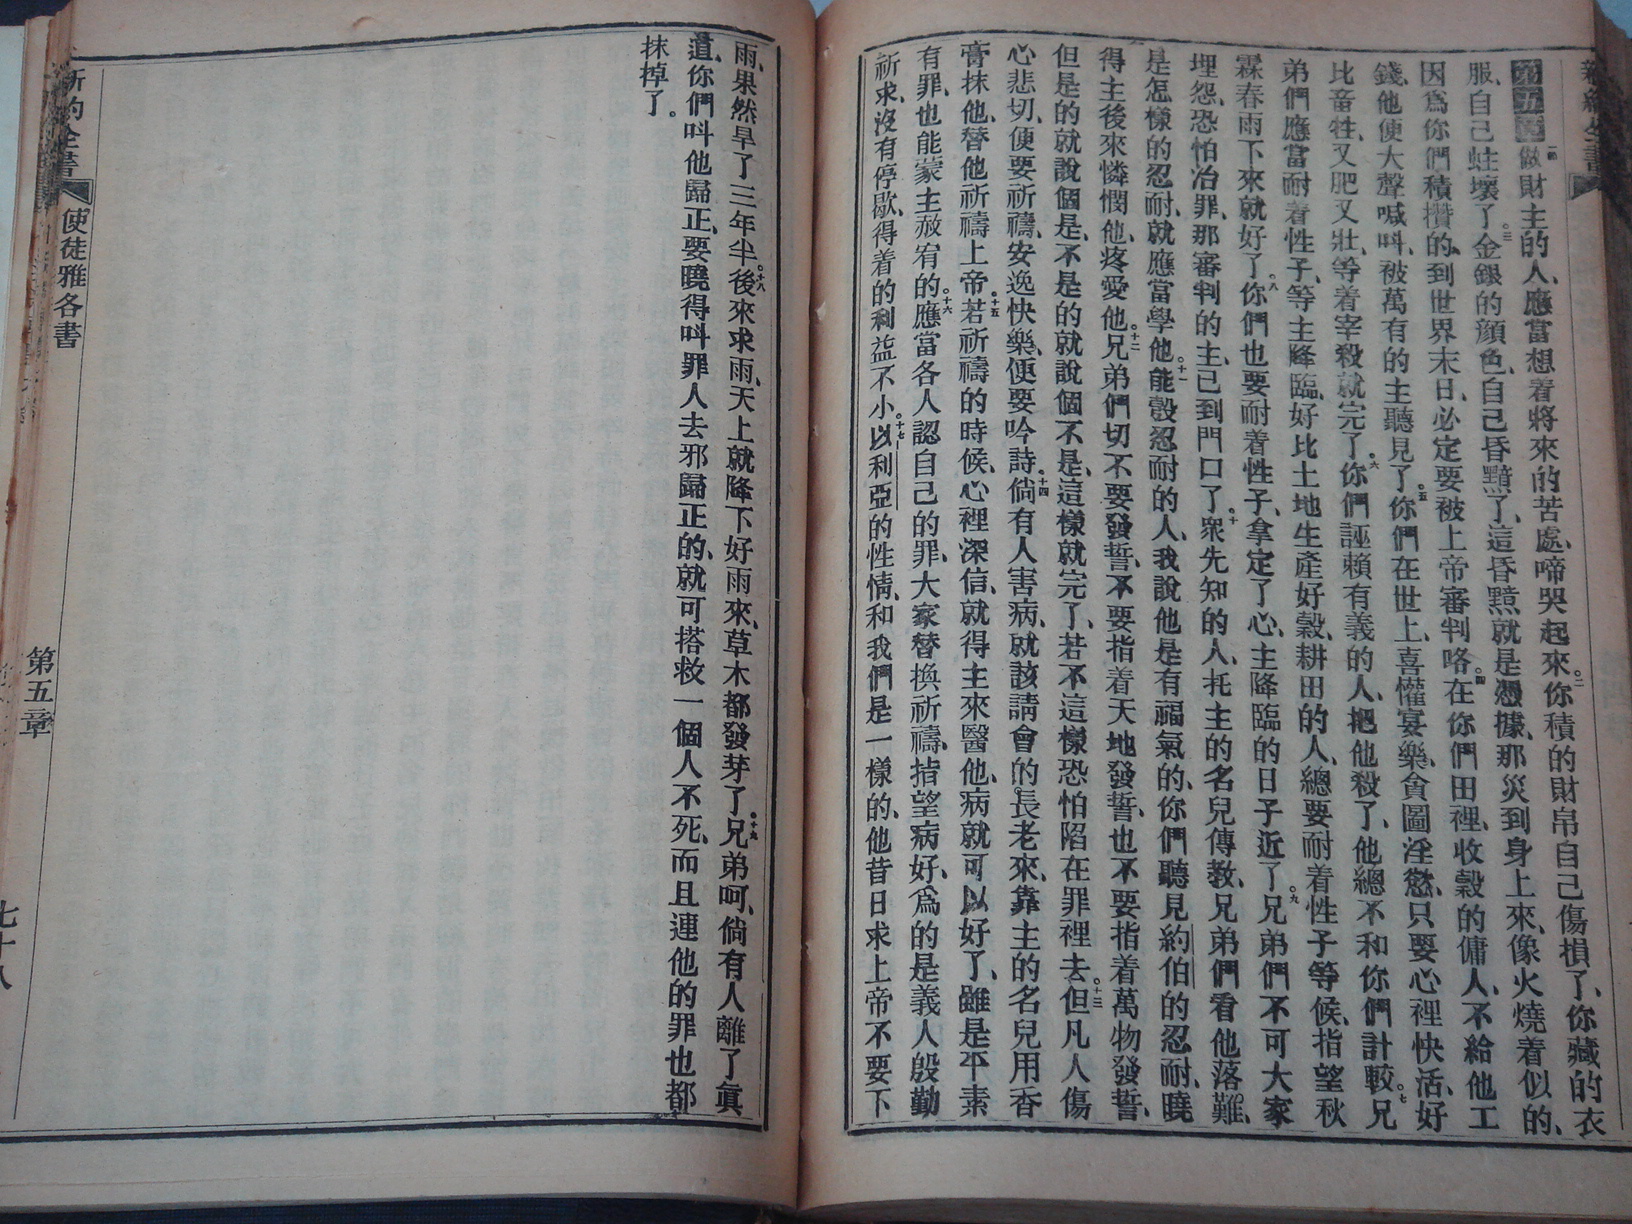 第五章 一節 做財主的人、應當想着將來的苦處、啼哭起來。二你積的財帛自己傷損了、你藏的衣
服、自己蛀壞了。三金銀的顔色、自己昏黯了、這昏黯就是憑據、那災到身上來、像火燒着似的、
因爲你們積攢的、到世界末日、必定要被上帝審判咯。四在你們田裡、收穀的傭人、不給他工
錢、他便大聲喊呌、被萬有的主聽見了。五你們在世上、喜懽宴樂、貪圖淫慾、只要心裡快活、好
比畜牲、又肥又壯、等着宰殺就完了。六你們誣賴有義的人、把他殺了、他總不和你們計較。七兄
弟們應當耐着性子、等主降臨、好比土地生產好穀、耕田的人、總要耐着性子等候、指望秋
霖春雨下來就好了。八你們也要耐着性子、拿定了心、主降臨的日子近了。九兄弟們不可大家
埋怨、恐怕冶罪、那審判的主、已到門口了。十衆先知的人、托主的名兒傳教、兄弟們看他落難、
是怎樣的忍耐、就應當學他。十一能彀忍耐的人、我說他是有福氣的、你們聽見約伯的忍耐、曉
得主後來憐憫他、疼愛他。十二兄弟們切不要發誓、不要指着天地發誓、也不要指着萬物發誓、
但是的就說個是、不是的就說個不是、這樣就完了、若不這樣恐怕陷在罪裡去。十三但凡人傷
心悲切、便要祈禱、安逸快樂、便要吟詩。十四倘有人害病、就該請會的長老來、靠主的名兒用香
膏抹他、替他祈禱上帝。十五若祈禱的時候、心裡深信、就得主來醫他、病就可以好了、雖是平素
有罪、也能蒙主赦宥的。十六應當各人認自己的罪、大家替換祈禱、指望病好、爲的是義人殷勤
祈求、沒有停歇、得着的利益不小。十七以利亞的性情、和我們是一樣的、他昔日求上帝不要下
雨、果然旱了三年半。十八後來求雨、天上就降下好雨來、草木都發芽了。十九兄弟呵、倘有人離了眞
道、你們呌他歸正、要曉得呌罪人去邪歸正的、就可搭救一個人不死、而且連他的罪也都
抹掉了。
新約全書 使徒雅各書 第五章 七十八